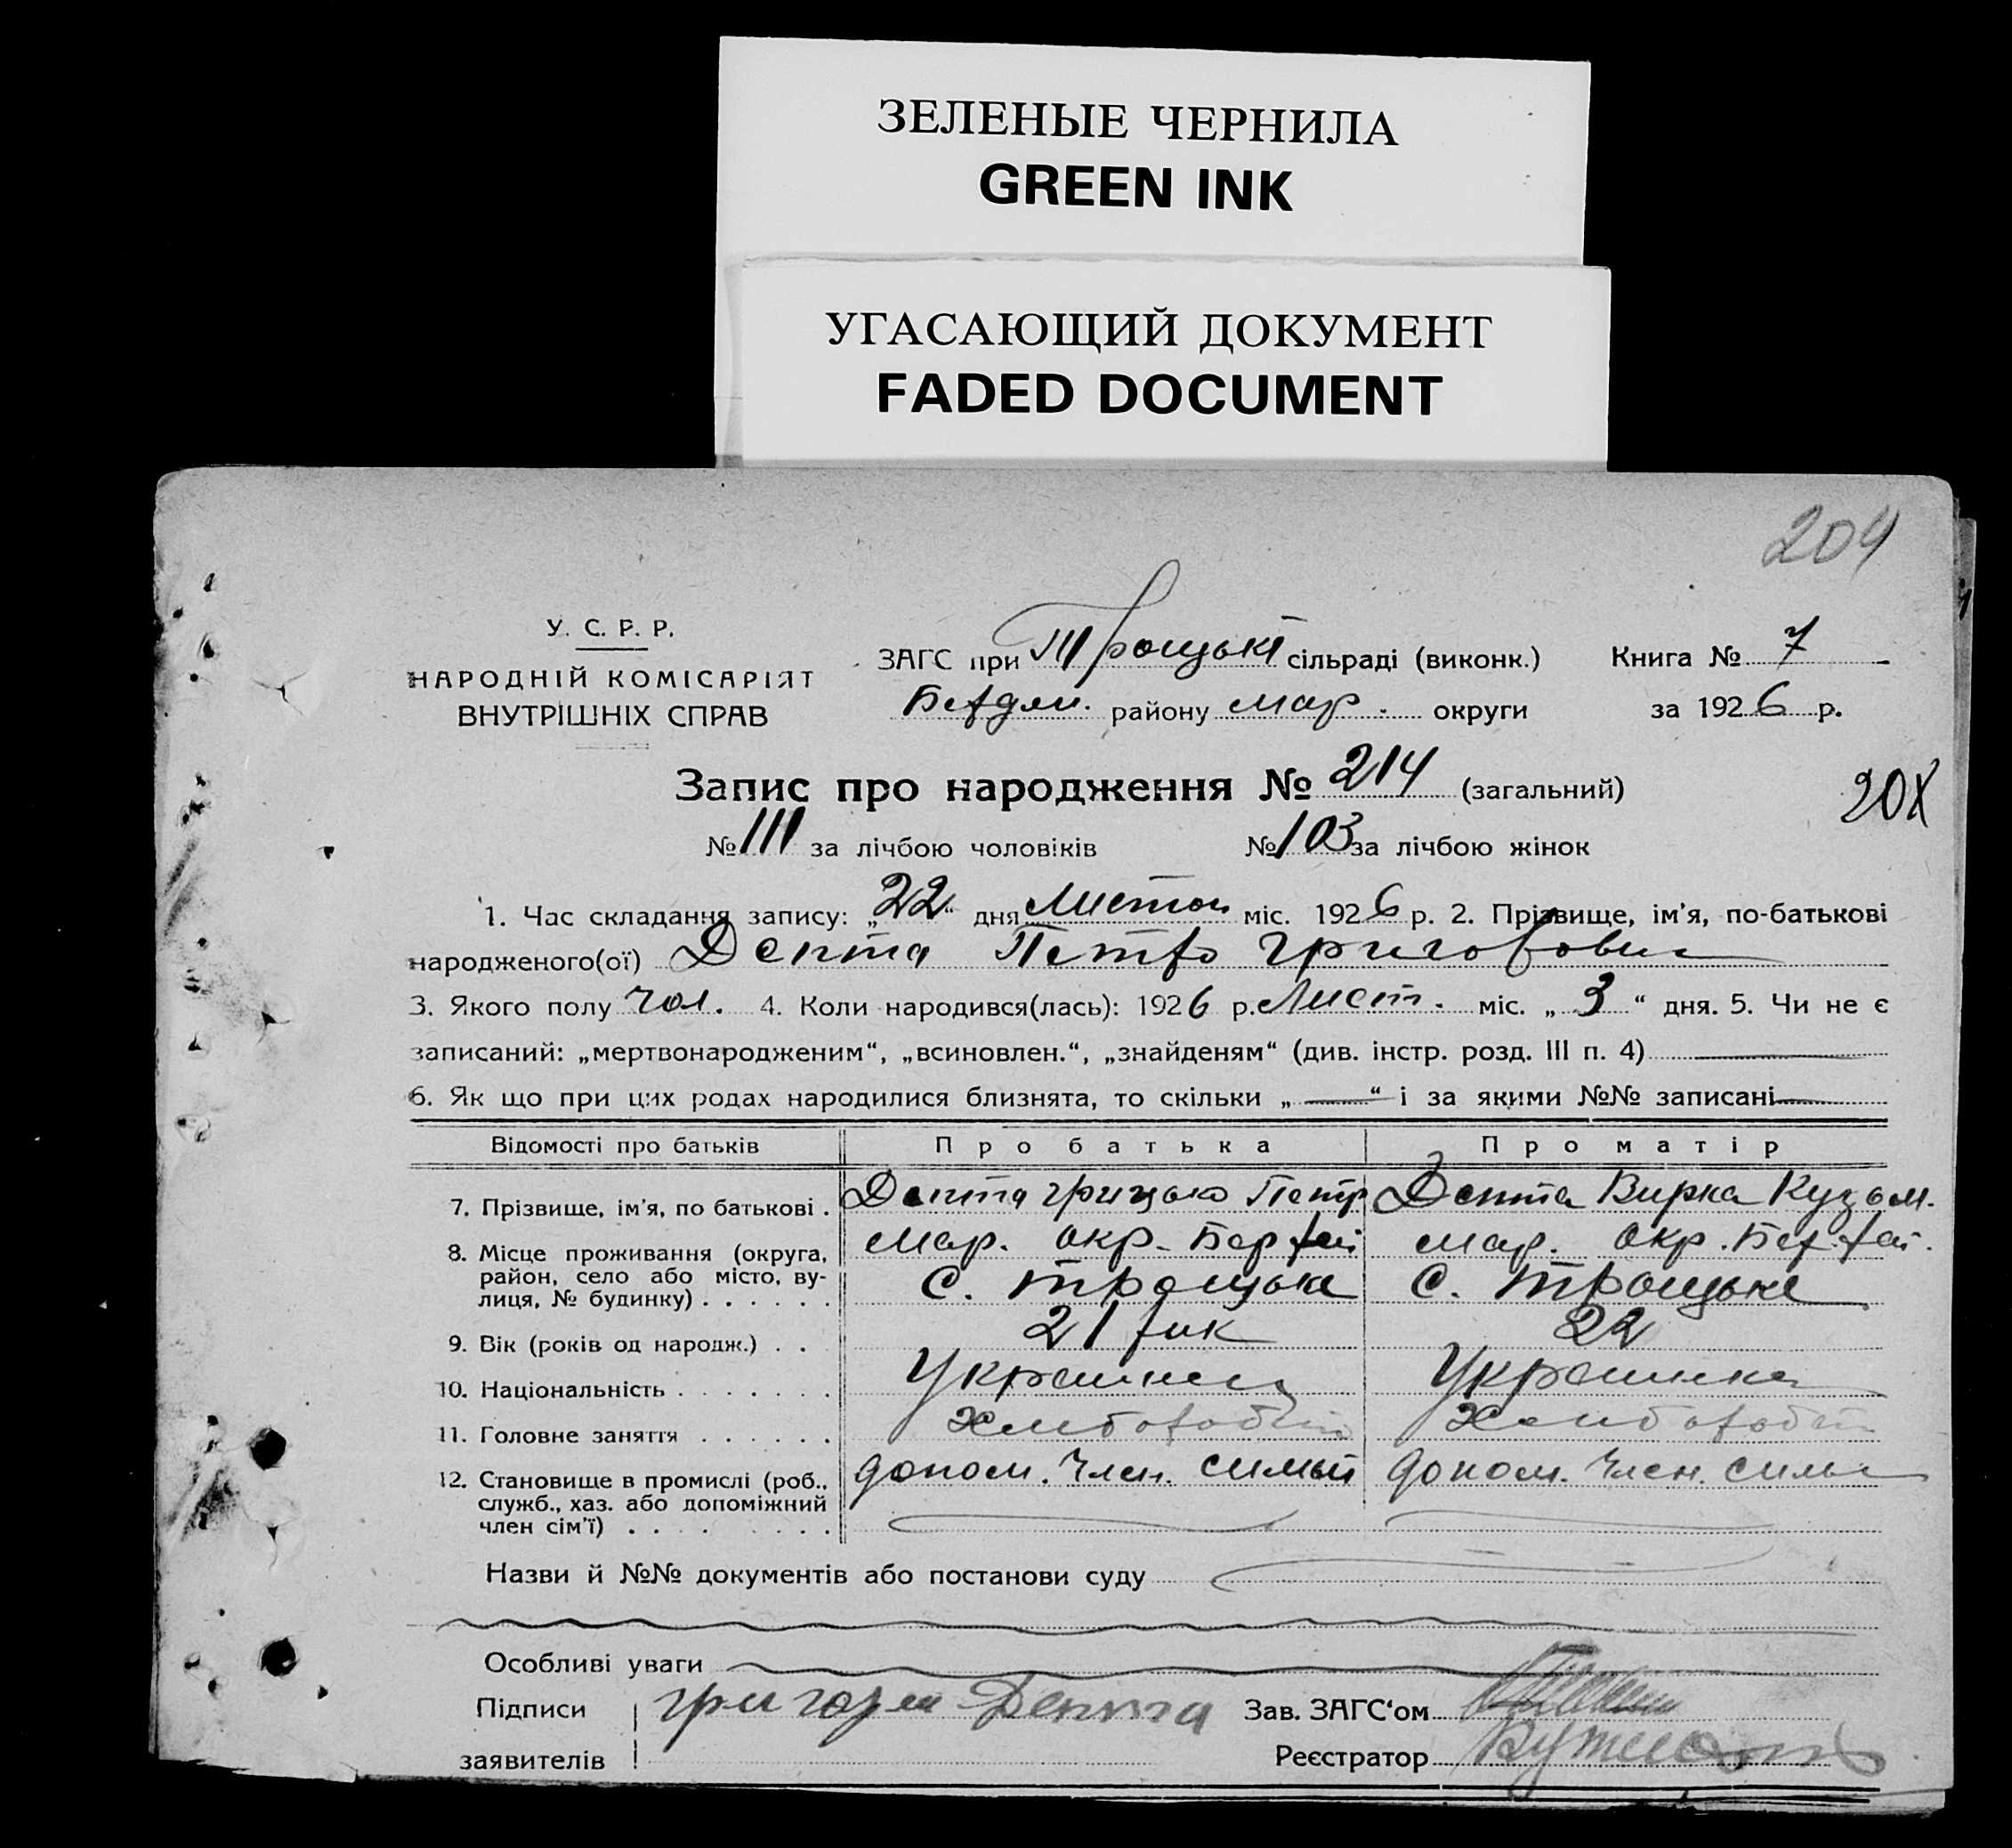 ЗЕЛЕНЫЕ ЧЕРНИЛА
GREEN INK
УГАСАЮЩИЙ ДОКУМЕНТ
FADED DOCUMENT
209
У. С. Р. Р.
НАРОДНІЙ КОМІСАРІЯТ
ВНУТРІШНІХ СПРАВ
ЗАГС при Троцькі сільраді (виконк.) Книга № 7
району мар. округи за 1926 р.
Запис про народження № 214 (загальний)
20X
№ 111 за лічбою чоловіків № 103 за лічбою жінок
1. Час складання запису: „22“ дня Листоп міс. 1926 р. 2. Прізвище, ім'я, по-батькові
народженого(ої) Депта Петро Григорович
3. Якого полу чол. 4. Коли народився(лась): 1926 р. Лист. міс. „3“ дня. 5. Чи не є
записаний: „мертвонародженим“, „всиновлен.“, „знайденям“ (див. інстр. розд. III п. 4)
6. Як що при цих родах народилися близнята, то скільки „—“ і за якими №№ записані
Відомості про батьків Про батька Про матір
7. Прізвище, ім'я, по батькові . Депта Грицько Петр Депта Вирка Кузьм.
8. Місце проживання (округа, район, село або місто, вулиця, № будинку) . . . . . . мар. окр. Бер рай мар. окр. Бер. рай.
с. Троцьке с. Троцьке
9. Вік (років од народж.) . . 21 рик 22
10. Національність . . . . . . . Украинец Украинка
11. Головне заняття . . . . . . Хлибороб Хлибороб
12. Становище в промислі (роб., служб., хаз. або допоміжний член сім'ї) . . . . . . . . допом. член. симьи допом. член. симьи
Назви й №№ документів або постанови суду
Особливі уваги
Підписи Григорій Депта Зав. ЗАГС'ом
заявителів Реєстратор